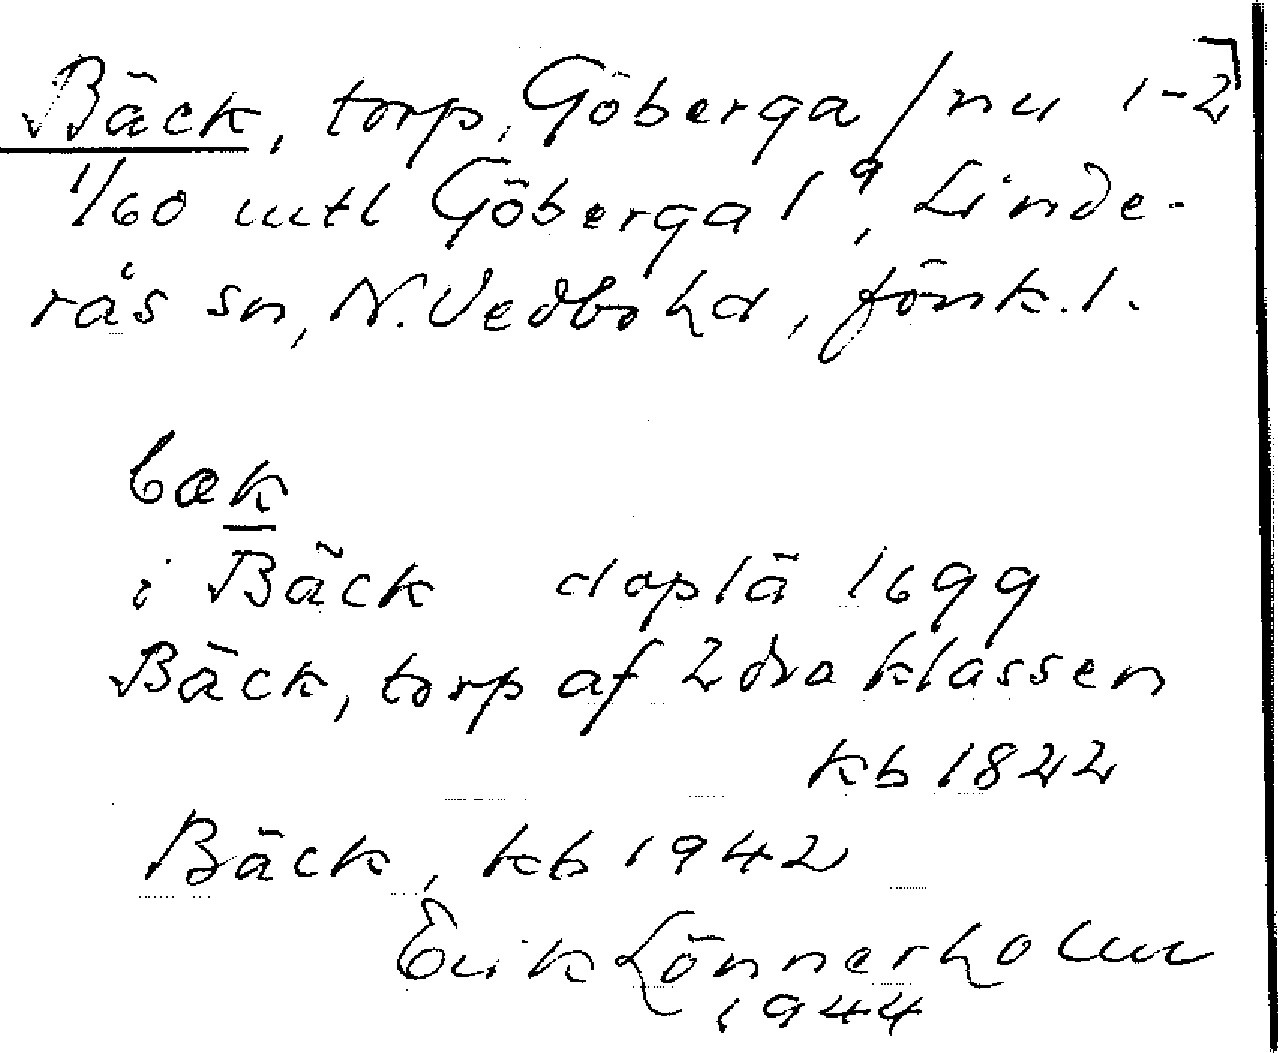 Bäck, torp, Göberga / nu 1-2
1/60 mtl Göberga 1⁹, Linde-
rås sn, N. Vedbo hd, Jönk. l.
bæk
i Bäck doplä 1699
Bäck, torp af 2dra klassen
kb 1822
Bäck, kb 1942
Erik Lönnerholm
1944